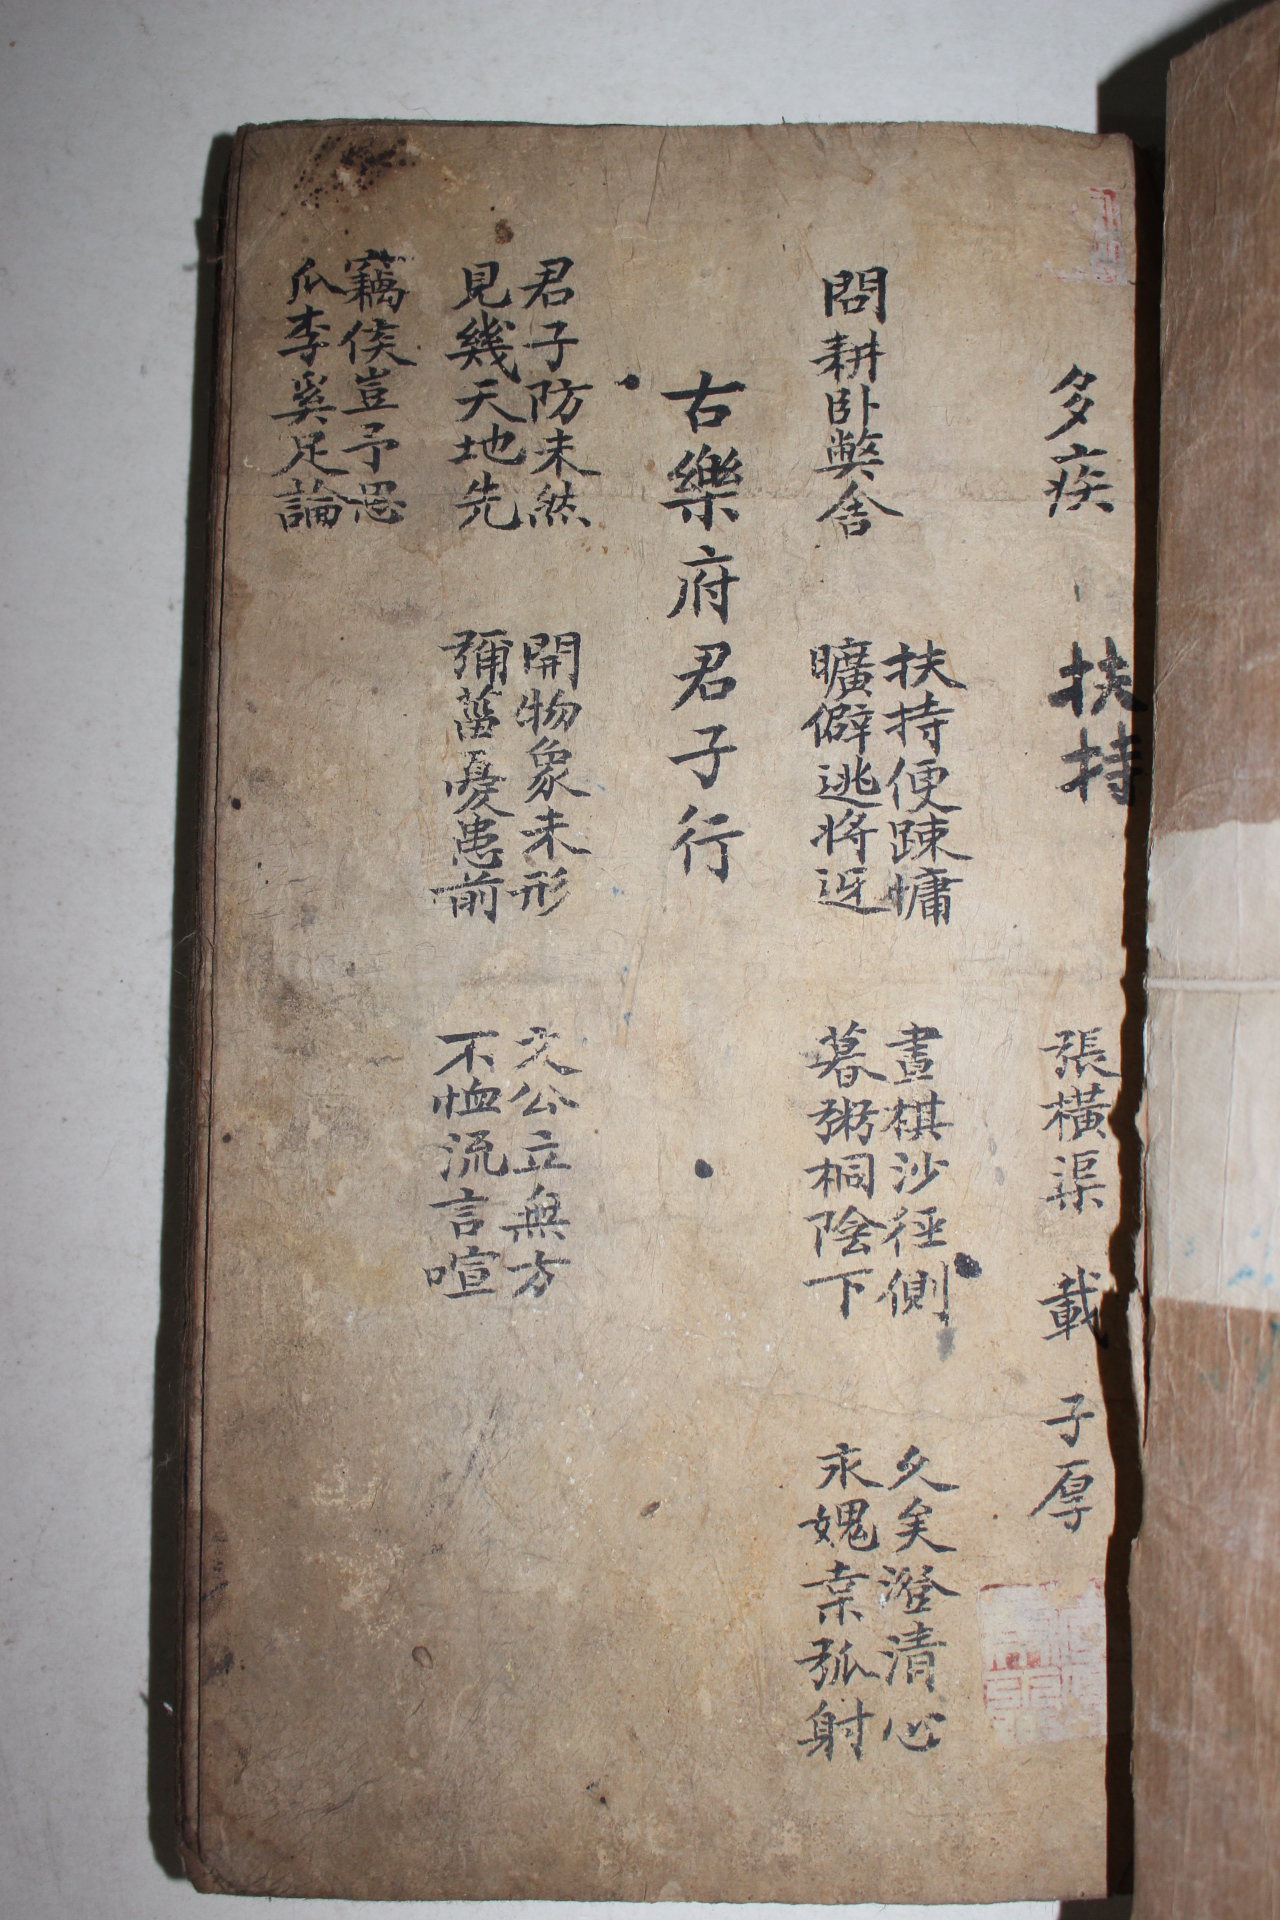 多疾 扶持 張橫渠 載 子厚
問耕臥弊舍
扶持便踈慵
曠僻逃將迓
晝棋沙徑側
暮粥桐陰下
久矣澄清心
永媿桒弧射
古樂府君子行
君子防未然
見幾天地先
開物象未形
彌菑憂患前
公立無方
不恤流言喧
竊侯豈予思
瓜李奚足論